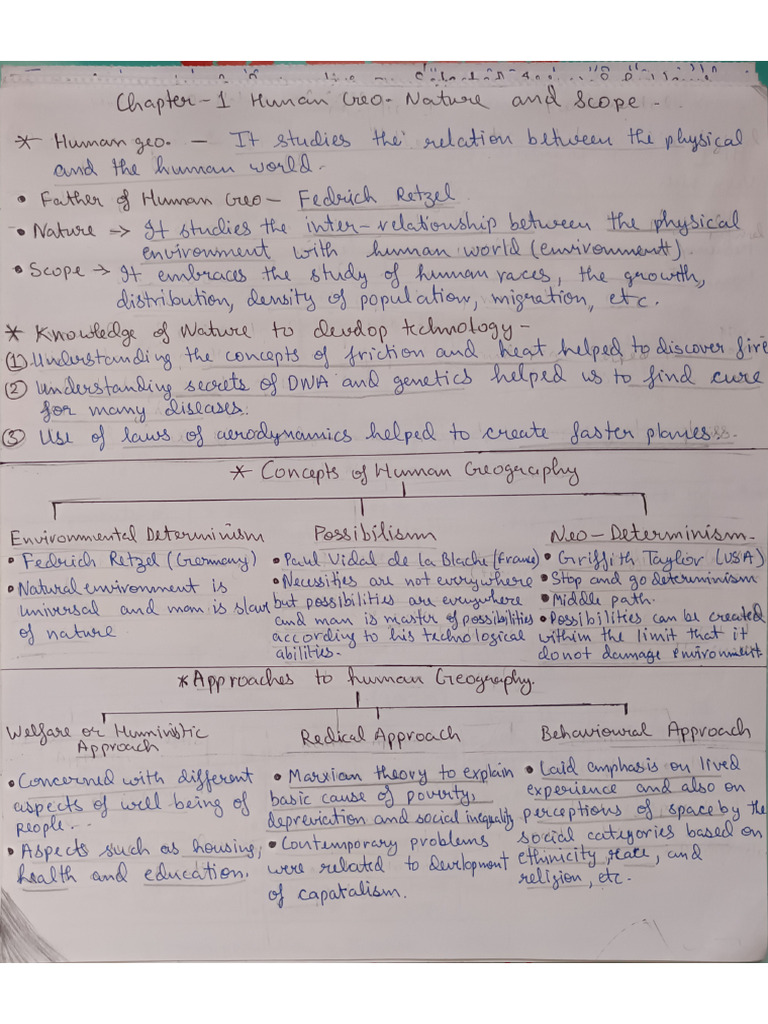 Chapter-1 Human Geo- Nature and Scope -
* Human geo. - It studies the relation between the physical
and the human world.
• Father of Human Geo- Fedrich Retzel
• Nature → It studies the inter-relationship between the physical
environment with human world (environment).
• Scope → It embraces the study of human races, the growth,
distribution, density of population, migration, etc.
* Knowledge of Nature to devdop technology -
(1) Understanding the concepts of friction and heat helped to discover fire
(2) Understanding secrets of DNA and genetics helped us to find cure
for many diseases.
(3) Use of laws of aerodynamics helped to create faster planes.
* Concepts of Human Geography
Environmental Determinism
• Fedrich Retzel (Germany)
• Natural environment is
universal and man is slave
of nature
Possibilism
• Paul Vidal de la Blache (France)
• Necessities are not everywhere
but possibilities are everywhere
and man is master of possibilities
according to his technological
abilities.
Neo-Determinism.
• Griffith Taylior (USA)
• Stop and go determinism
• Middle path.
• Possibilities can be created
within the limit that it
do not damage environment.
* Approaches to human Geography.
Welfare or Humnistic
Approach
• Concerned with different
aspects of well being of
people.
• Aspects such as housing,
health and education.
Redical Approach
• Marxian theory to explain
basic cause of poverty,
depreviation and social inequality
• Contemporary problems
were related to development
of capatalism.
Behavioural Approach
• Laid emphasis on lived
experience and also on
perceptions of space by the
social categories based on
ethinicity, race, and
religion, etc.